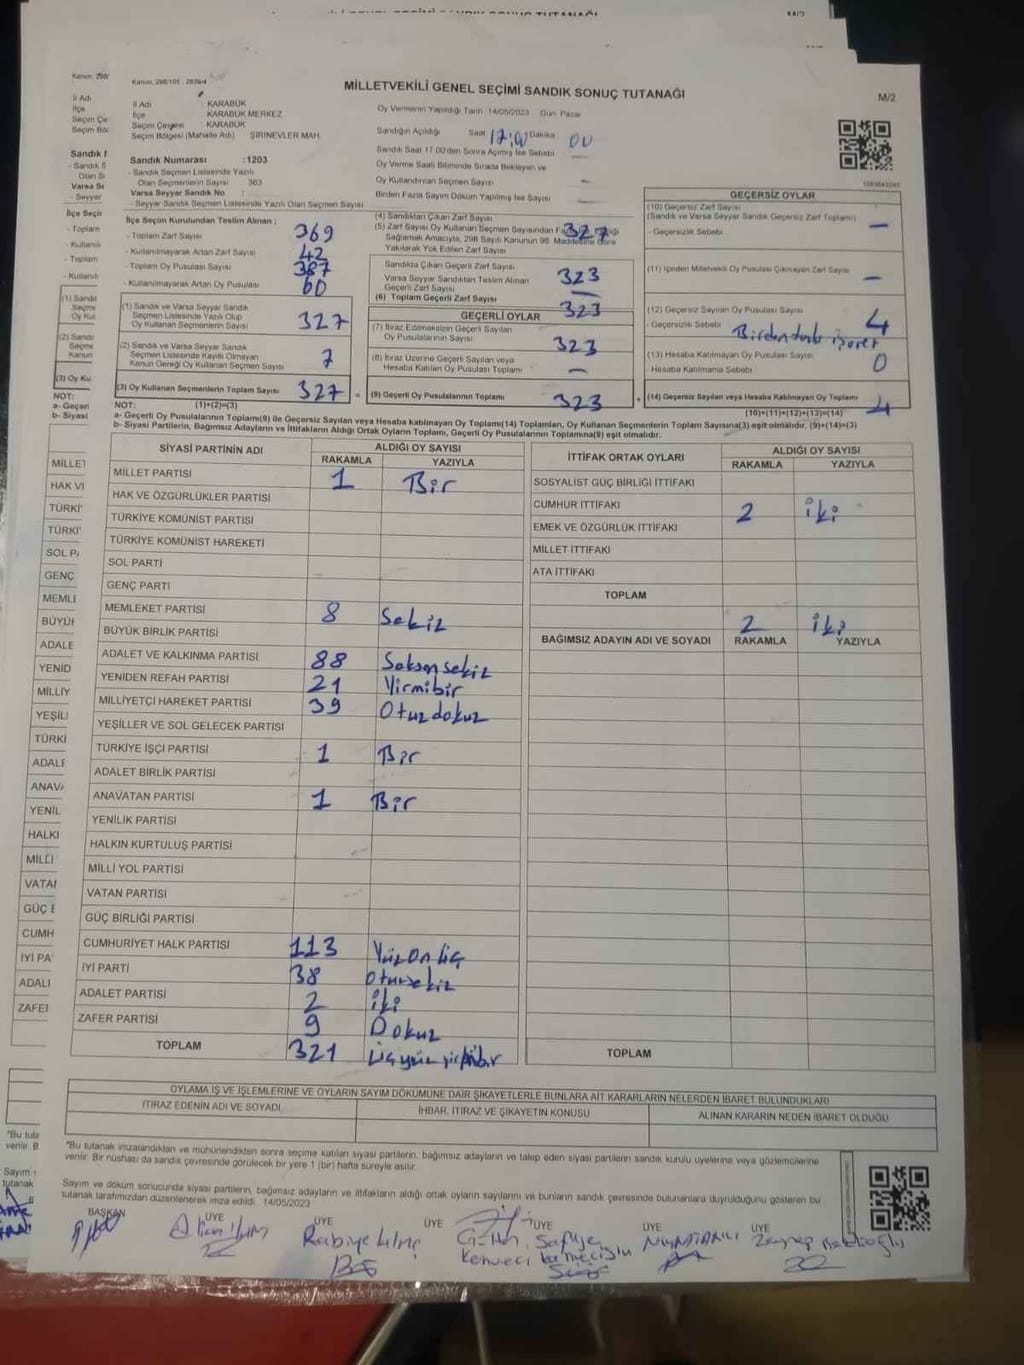 MİLLETVEKİLİ GENEL SEÇİMİ SANDIK SONUÇ TUTANAĞI
M/2
Kanun: 298/105 , 2839/4
İl Adı KARABÜK
İlçe KARABÜK MERKEZ
Seçim Çevresi KARABÜK
Seçim Bölgesi (Mahalle Adı) ŞİRİNEVLER MAH.
Oy Vermenin Yapıldığı Tarih :14/05/2023 Gün: Pazar
Sandığın Açıldığı Saat 17:00 Dakika 00
Sandık Saat 17.00'den Sonra Açılmış İse Sebebi
Oy Verme Saati Bitiminde Sırada Bekleyen ve
Oy Kullandırılan Seçmen Sayısı
Birden Fazla Sayım Döküm Yapılmış İse Sayısı
Sandık Numarası :1203
- Sandık Seçmen Listesinde Yazılı
Olan Seçmenlerin Sayısı 363
Varsa Seyyar Sandık No :
- Seyyar Sandık Seçmen Listesinde Yazılı Olan Seçmen Sayısı
İlçe Seçim Kurulundan Teslim Alınan ;
- Toplam Zarf Sayısı 369
- Kullanılmayarak Artan Zarf Sayısı 42
- Toplam Oy Pusulası Sayısı 387
- Kullanılmayarak Artan Oy Pusulası 60
(1) Sandık ve Varsa Seyyar Sandık
Seçmen Listesinde Yazılı Olup
Oy Kullanan Seçmenlerin Sayısı 327
(2) Sandık ve Varsa Seyyar Sandık
Seçmen Listesinde Kayıtlı Olmayan
Kanun Gereği Oy Kullanan Seçmen Sayısı
(3) Oy Kullanan Seçmenlerin Toplam Sayısı 327
(4) Sandıktan Çıkan Zarf Sayısı 327
(5) Zarf Sayısı Oy Kullanan Seçmen Sayısından
Sağlamak Amacıyla, 298 Sayılı Kanunun 98. Maddesine Göre
Yakılarak Yok Edilen Zarf Sayısı
Sandıkta Çıkan Geçerli Zarf Sayısı 323
Varsa Seyyar Sandıktan Teslim Alınan
Geçerli Zarf Sayısı —
(6) Toplam Geçerli Zarf Sayısı 323
GEÇERLİ OYLAR
(7) İtiraz Edilmeksizin Geçerli Sayılan
Oy Pusulalarının Sayısı 323
(8) İtiraz Üzerine Geçerli Sayılan veya
Hesaba Katılan Oy Pusulası Toplamı —
(9) Geçerli Oy Pusulalarının Toplamı 323
GEÇERSİZ OYLAR
(10) Geçersiz Zarf Sayısı
(Sandık ve Varsa Seyyar Sandık Geçersiz Zarf Toplamı) —
- Geçersizlik Sebebi
(11) İçinden Milletvekili Oy Pusulası Çıkmayan Zarf Sayısı —
(12) Geçersiz Sayılan Oy Pusulası Sayısı 4
- Geçersizlik Sebebi
(13) Hesaba Katılmayan Oy Pusulası Sayısı 0
Hesaba Katılmama Sebebi
(14) Geçersiz Sayılan veya Hesaba Katılmayan Oy Toplamı 4
NOT: (1)+(2)=(3)
(10)+(11)+(12)+(13)=(14)
a- Geçerli Oy Pusulalarının Toplamı(9) ile Geçersiz Sayılan veya Hesaba katılmayan Oy Toplamı(14) Toplamları, Oy Kullanan Seçmenlerin Toplam Sayısına(3) eşit olmalıdır. (9)+(14)=(3)
b- Siyasi Partilerin, Bağımsız Adayların ve İttifakların Aldığı Ortak Oyların Toplamı, Geçerli Oy Pusulalarının Toplamına(9) eşit olmalıdır.
SİYASİ PARTİNİN ADI ALDIĞI OY SAYISI
RAKAMLA YAZIYLA
MİLLET PARTİSİ 1 Bir
HAK VE ÖZGÜRLÜKLER PARTİSİ
TÜRKİYE KOMÜNİST PARTİSİ
TÜRKİYE KOMÜNİST HAREKETİ
SOL PARTİ
GENÇ PARTİ
MEMLEKET PARTİSİ 8 Sekiz
BÜYÜK BİRLİK PARTİSİ
ADALET VE KALKINMA PARTİSİ 88 Seksensekiz
YENİDEN REFAH PARTİSİ 21 Yirmibir
MİLLİYETÇİ HAREKET PARTİSİ 39 Otuzdokuz
YEŞİLLER VE SOL GELECEK PARTİSİ
TÜRKİYE İŞÇİ PARTİSİ 1 Bir
ADALET BİRLİK PARTİSİ
ANAVATAN PARTİSİ 1 Bir
YENİLİK PARTİSİ
HALKIN KURTULUŞ PARTİSİ
MİLLİ YOL PARTİSİ
VATAN PARTİSİ
GÜÇ BİRLİĞİ PARTİSİ
CUMHURİYET HALK PARTİSİ 113 Yüzonüç
İYİ PARTİ 38 Otuzsekiz
ADALET PARTİSİ 2 iki
ZAFER PARTİSİ 9 Dokuz
TOPLAM 321 Üçyüzyirmibir
İTTİFAK ORTAK OYLARI ALDIĞI OY SAYISI
RAKAMLA YAZIYLA
SOSYALİST GÜÇ BİRLİĞİ İTTİFAKI
CUMHUR İTTİFAKI 2 iki
EMEK VE ÖZGÜRLÜK İTTİFAKI
MİLLET İTTİFAKI
ATA İTTİFAKI
TOPLAM 2 iki
BAĞIMSIZ ADAYIN ADI VE SOYADI RAKAMLA YAZIYLA
TOPLAM
OYLAMA İŞ VE İŞLEMLERİNE VE OYLARIN SAYIM DÖKÜMÜNE DAİR ŞİKAYETLERLE BUNLARA AİT KARARLARIN NELERDEN İBARET BULUNDUKLARI
İTİRAZ EDENİN ADI VE SOYADI İHBAR, İTİRAZ VE ŞİKAYETİN KONUSU ALINAN KARARIN NEDEN İBARET OLDUĞU
*Bu tutanak imzalandıktan ve mühürlendikten sonra seçime katılan siyasi partilerin, bağımsız adayların ve talep eden siyasi partilerin sandık kurulu üyelerine veya gözlemcilerine
verilir. Bir nüshası da sandık çevresinde görülecek bir yere 1 (bir) hafta süreyle asılır.
Sayım ve döküm sonucunda siyasi partilerin, bağımsız adayların ve ittifakların aldığı ortak oyların sayılarını ve bunların sandık çevresinde bulunanlara duyrulduğunu gösteren bu
tutanak tarafımızdan düzenlenerek imza edildi. 14/05/2023
BAŞKAN ÜYE ÜYE ÜYE ÜYE ÜYE ÜYE
Rabiye